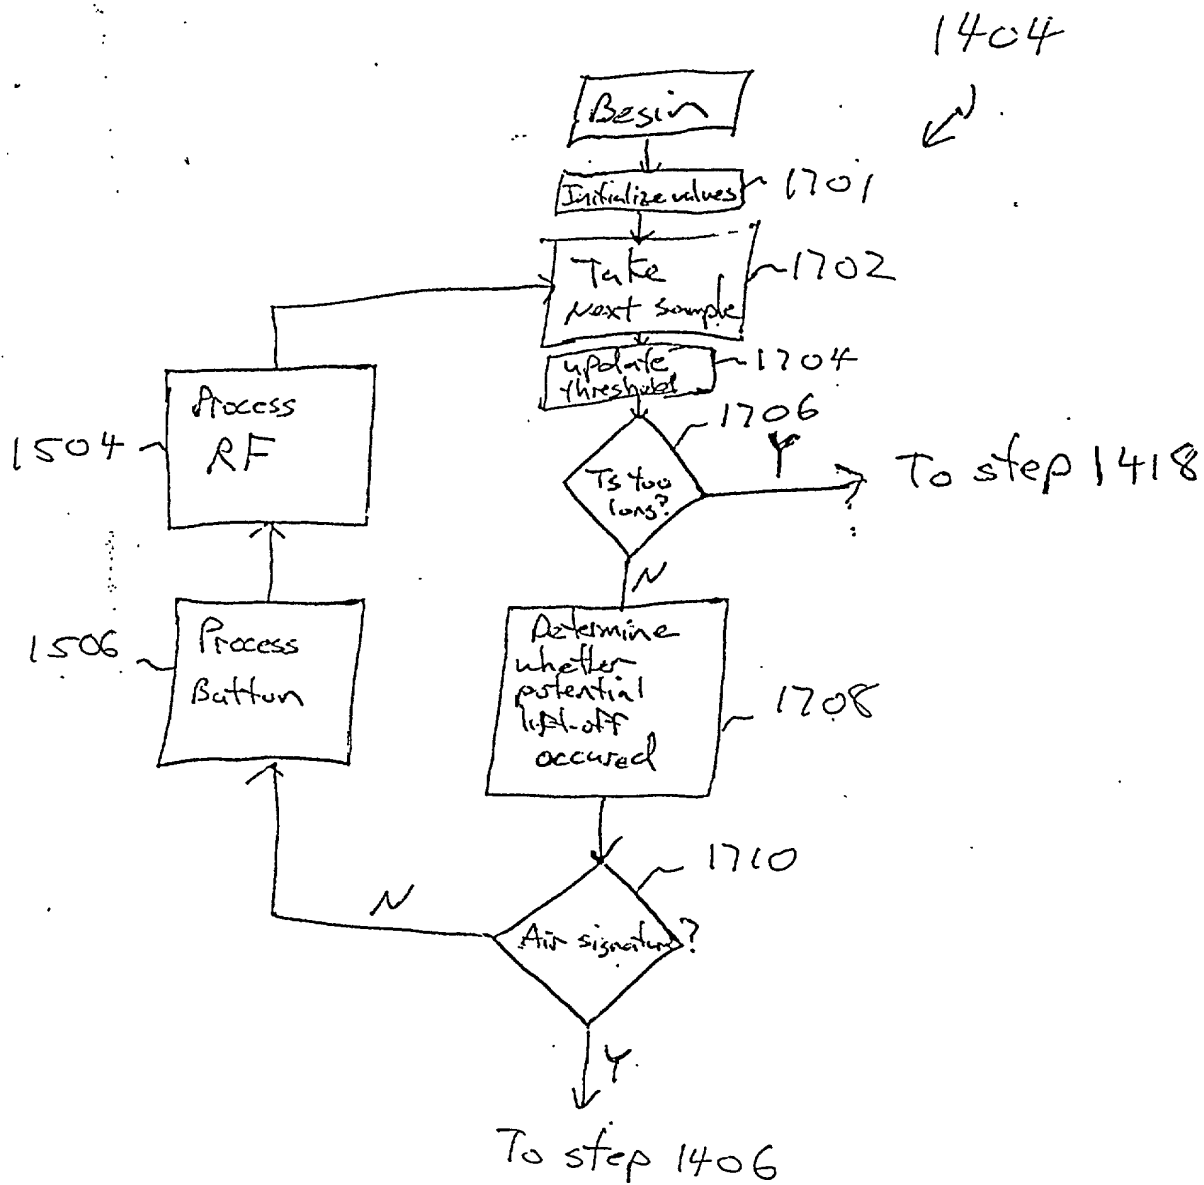 1404
Begin
Initialize values
1701
Take
Next Sample
1702
update
threshold
1704
1706
Ts too
long?
Y
To step 1418
N
Determine
whether
potential
lift-off
occured
1708
1710
Air signature?
N
Y
To step 1406
Process
RF
1504
Process
Button
1506